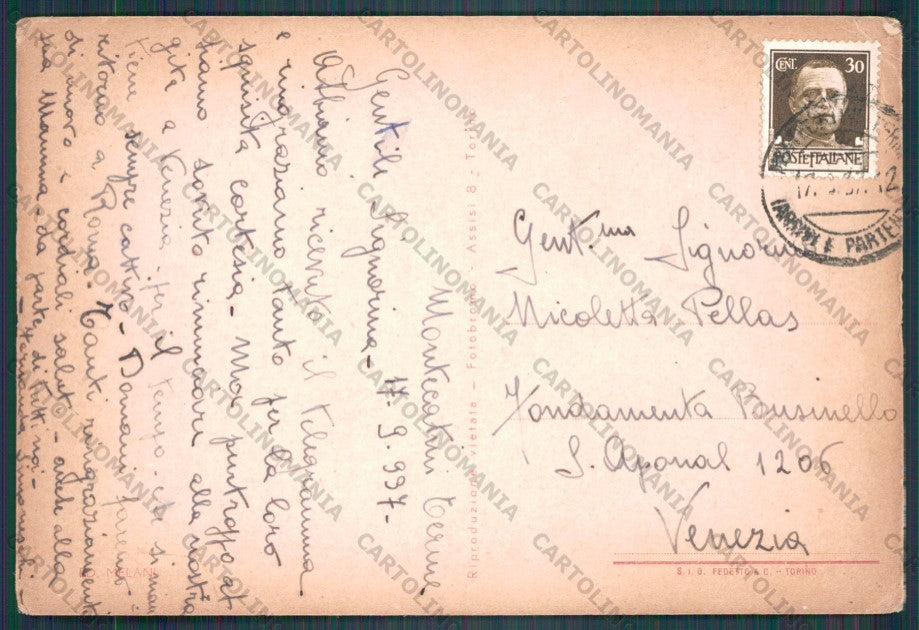 Montecatini Terme
17.9.937-
Gentile Signorina-
Abbiamo ricevuto il telegramma
e ringraziamo tanto per la loro
squisita cortesia - Noi purtroppo ab
biamo dovuto rinunciare alla nostra
gita a Venezia, per il tempo che si man
tiene sempre cattivo - Domani faremo
ritorno a Roma. Tanti ringraziamenti
di nuovo e cordiali saluti - anche alla
sua Mamma da parte di tutti noi -
Gent.ma Signorina
Nicoletta Pellas
Fondamenta Businello
S. Aponal 1206
Venezia
CENT. 30
POSTE ITALIANE
ARRIVI E PARTENZE
Riproduzione vietata - Fotobromo - Assisi 8 - Torino
S.I.G. FEDETTO & C. - TORINO
MELANI
CARTOLINOMANIA